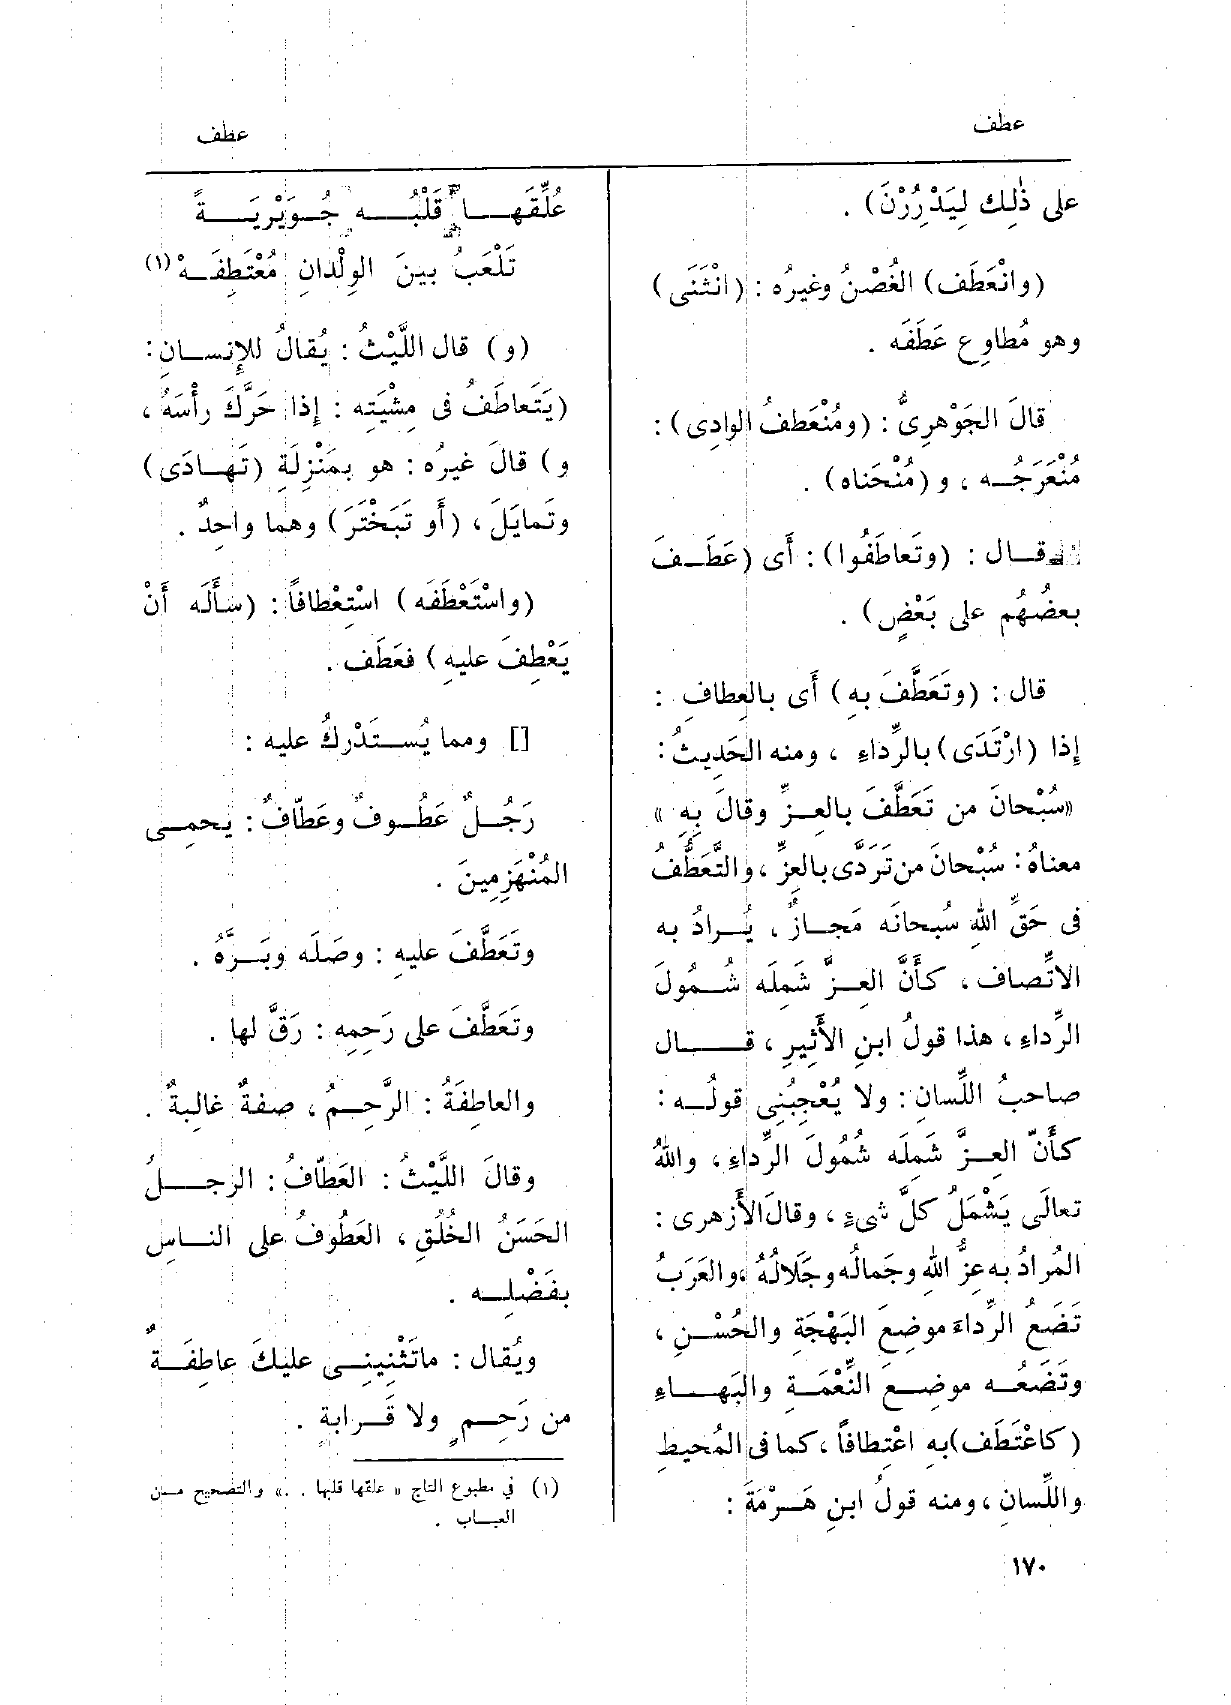 عطف
عطف
على ذٰلِك لِيَدْرُرْنَ) .
(وانْعَطَف) الغُصْنُ وغيرُه : (انْثَنَى)
وهو مُطاوِع عَطَفَه .
قالَ الجَوْهرِىُّ : (ومُنْعَطفُ الوادِى) :
مُنْعَرَجُـه ، و (مُنْحَناه) .
قـال : (وتَعاطَفُوا) : أَى (عَطَـفَ
بعضُهُم على بَعْضٍ) .
قال : (وتَعَطَّفَ بهِ) أَى بالعِطافِ :
إذا (ارْتَدَى) بالرِّداءِ ، ومنه الحَدِيثُ :
«سُبْحانَ من تَعَطَّفَ بالعِـزِّ وقالَ بِهِ»
معناهُ : سُبْحانَ من تَرَدَّى بالعزِّ ، والتَّعَطُّفُ
فى حَقِّ اللهِ سُبحانَه مَجـازٌ ، يُـرادُ به
الاتِّصاف ، كأَنَّ العِـزَّ شَمِلَه شُمُولَ
الرِّداءِ ، هذا قولُ ابنِ الأَثِيرِ ، قـــال
صاحبُ اللِّسانِ : ولا يُعْجِبُنِى قولُـه :
كأَنّ العِـزَّ شَمِلَه شُمُولَ الرِّداءِ ، واللهُ
تعالَى يَشْمَلُ كلَّ شىءٍ ، وقالَ الأَزهرى :
المُرادُ به عِزُّ اللهِ وجَمالُه وجَلالُهُ ،والعَرَبُ
تَضَعُ الرِّداءَ موضِعَ البَهْجَةِ والحُسْـنِ ،
وتَضَعُـه موضِـعَ النِّعْمَـةِ والبَهـاءِ
(كاعْتَطَف) بهِ اعْتِطافاً ، كما فى المُحيطِ
واللِّسانِ ، ومنه قولُ ابنِ هَـرْمَةَ :
عُلِّقَهـا قَلْبُـه جُـوَيْرِيَـةً
تَلْعَبُ بينَ الوِلْدانِ مُعْتَطِفَـهْ (١)
(و) قال اللَّيْثُ : يُقالُ للإِنسـانِ :
(يَتَعاطَفُ فى مِشْيَتِه : إذا حَرَّكَ رأْسَهُ ،
و) قالَ غيرُه : هو بمَنْزِلَةِ (تَهـادَى)
وتَمايَلَ ، (أَو تَبَخْتَرَ) وهما واحِدٌ .
(واسْتَعْطَفَه) اسْتِعْطافاً : (سأَلَه أَنْ
يَعْطِفَ عليهِ) فعَطَف .
[] ومما يُسـتَدْركُ عليه :
رَجُـلٌ عَطُـوفٌ وعَطّافٌ : يَحمِـى
المُنْهَزِمِينَ .
وتَعَطَّفَ عليهِ : وصَلَه وبَـرَّهُ .
وتَعَطَّفَ على رَحِمِه : رَقَّ لها .
والعاطِفَةُ : الرَّحِـمُ ، صفةٌ غالِبةٌ .
وقالَ اللَّيْثُ : العَطّافُ : الرجـلُ
الحَسَنُ الخُلُقِ ، العَطُوفُ على النـاسِ
بفَضْلِـه .
ويُقال : ماتَثْنِينِـى عليكَ عاطِفَـةٌ
من رَحِـمٍ ولا قَـرابةٍ .
(١) في مطبوع التاج « علقها قلبها . .» والتصحيح مـن
العبـاب .
١٧٠